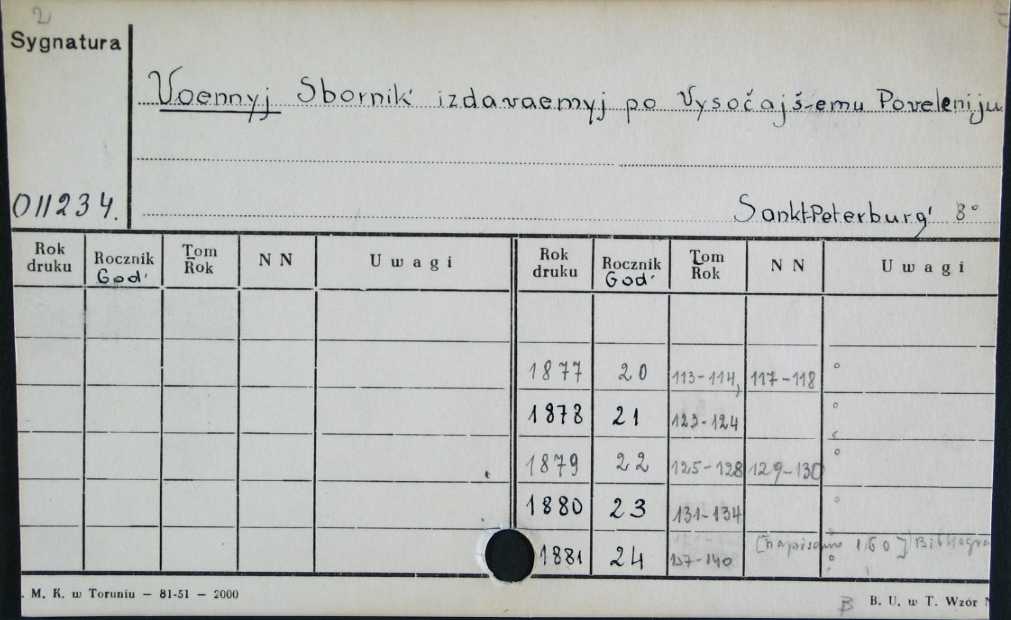 2
Sygnatura
Voennyj Sbornik' izdavaemyj po Vysočajš-emu Poveleniju
011234.
Sankt-Peterburg' 8°
Rok druku Rocznik God' Tom Rok NN Uwagi Rok druku Rocznik God' Tom Rok NN Uwagi
1877 20 113-114, 117-118
1878 21 123-124
1879 22 125-128 129-130
1880 23 131-134
1881 24 137-140 [napisano 160]
. M. K. w Toruniu — 81-51 — 2000
B
B. U. w T. Wzór